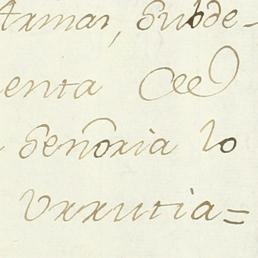 Armas, Subde-
enta
Señoria lo
Urrutia=